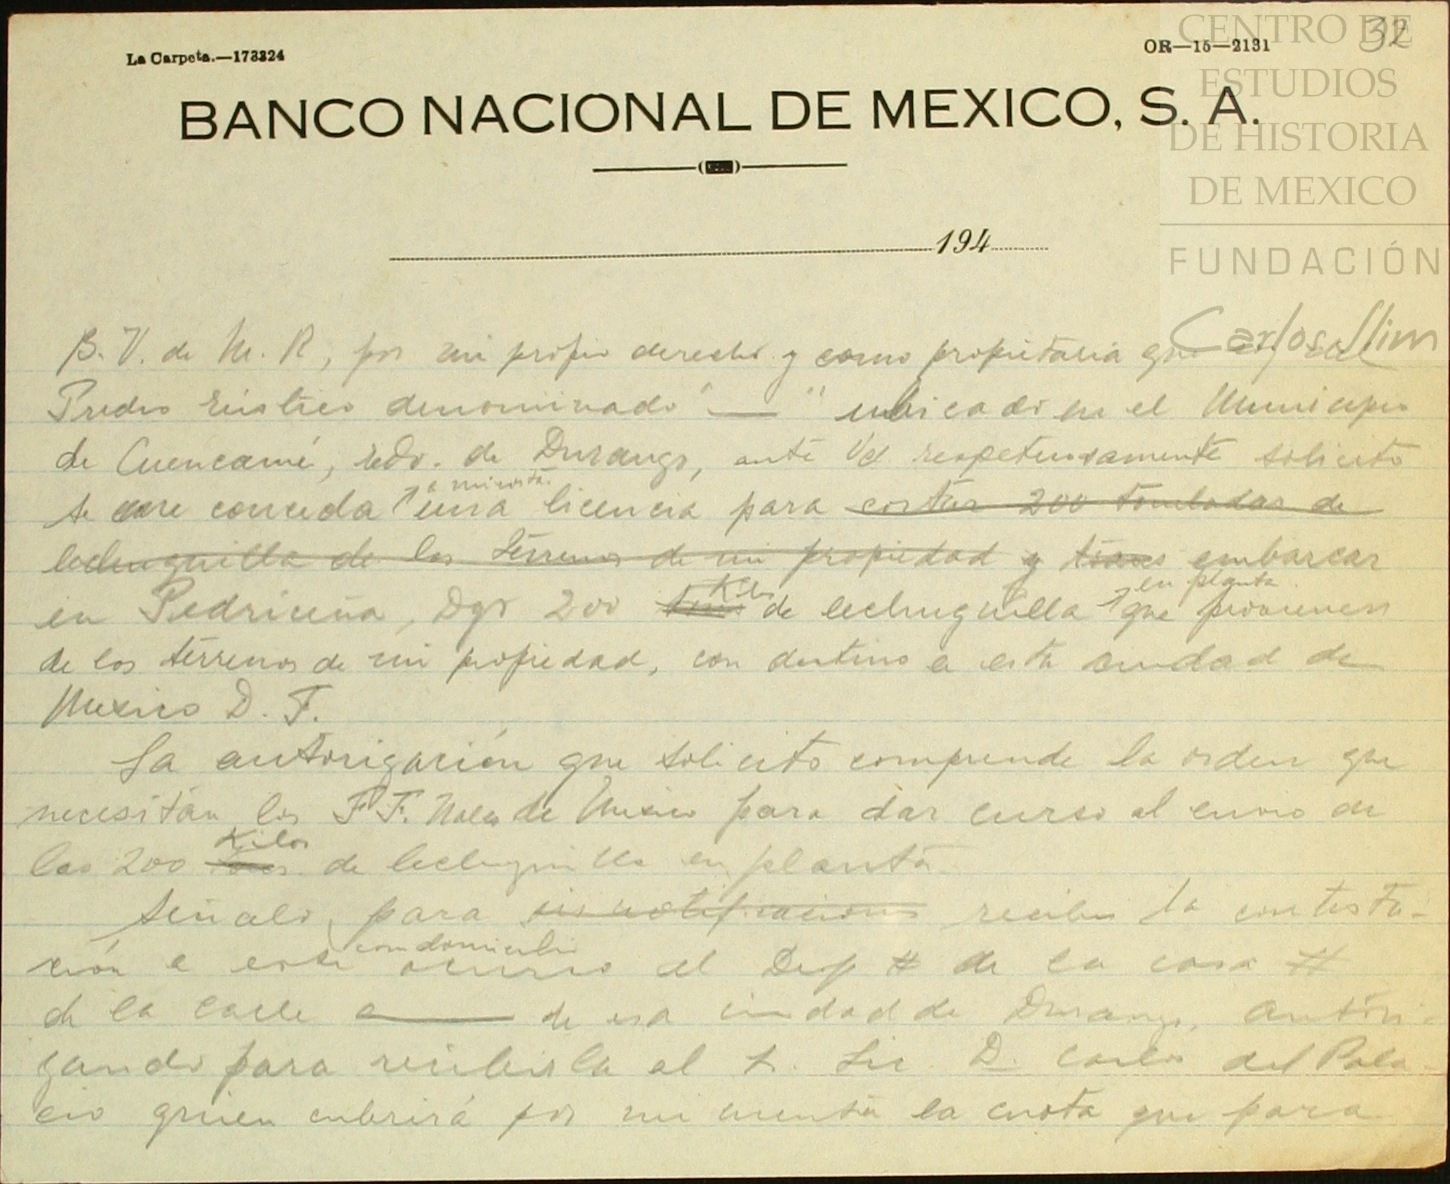 La Carpeta.—173324
OR—15—2131
32
CENTRO DE
ESTUDIOS
DE HISTORIA
DE MEXICO
FUNDACIÓN
Carlos Slim
BANCO NACIONAL DE MEXICO, S. A.
194
B. V. de M. R, por mi propio derecho y como propietaria que
Predio rústico denominado "—" ubicado en el Municipio
de Cuencamé, Edo. de Durango, ante Ud respetuosamente solicito
se me conceda una licencia para cortar 200 toneladas de
lechuguilla de los terrenos de mi propiedad y embarcar
en Pedriceña, Dgo 200 Kilos de lechuguilla en planta que provienen
de los terrenos de mi propiedad, con destino a esta ciudad de
Mexico D. F.
La autorización que solicito comprende la orden que
necesitan los F F. Nales de Mexico para dar curso al envio de
las 200 Kilos de lechuguilla en planta.
Señalo, para sus notificaciones recibir la contesta-
ción a este ocurso con domicilio el Dep # de la casa #
de la calle a — de esa ciudad de Durango, autori-
zando para recibirla al S. Lic. D. Carlos del Pala-
cio quien cubrirá por mi cuenta la cuota que para